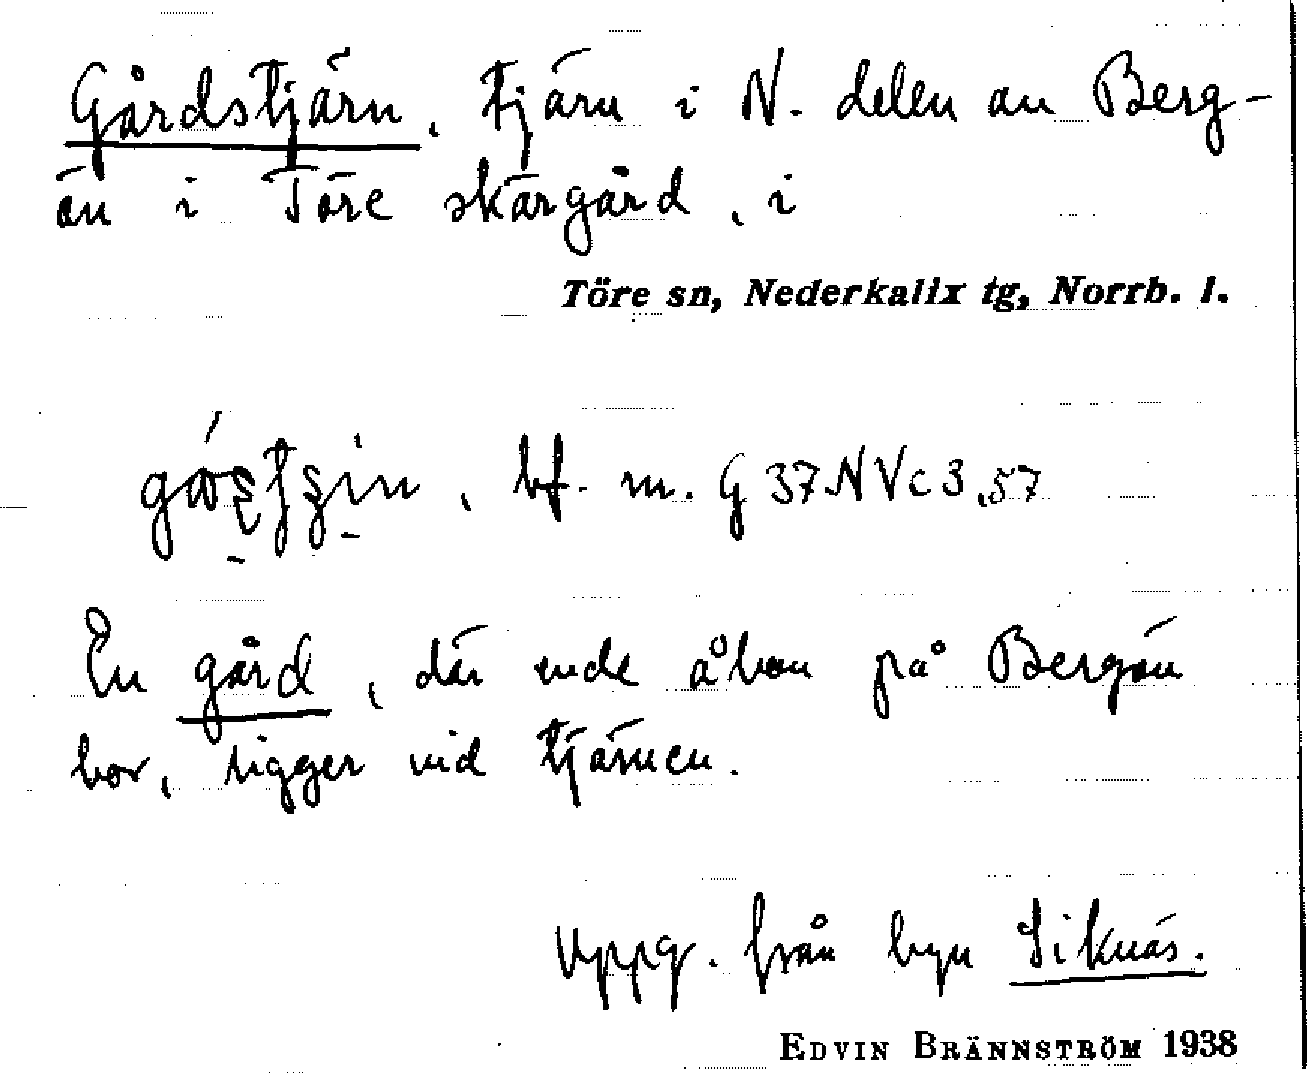 Gårdstjärn, tjärn i N. delen av Berg-
ön i Töre skärgård, i
Töre sn, Nederkalix tg, Norrb. l.
bf. m. G 37 NV c 3, 57
En gård, där enda åbon på Bergön
bor, ligger vid tjärnen.
Uppg. från byn Siknäs.
EDVIN BRÄNNSTRÖM 1938